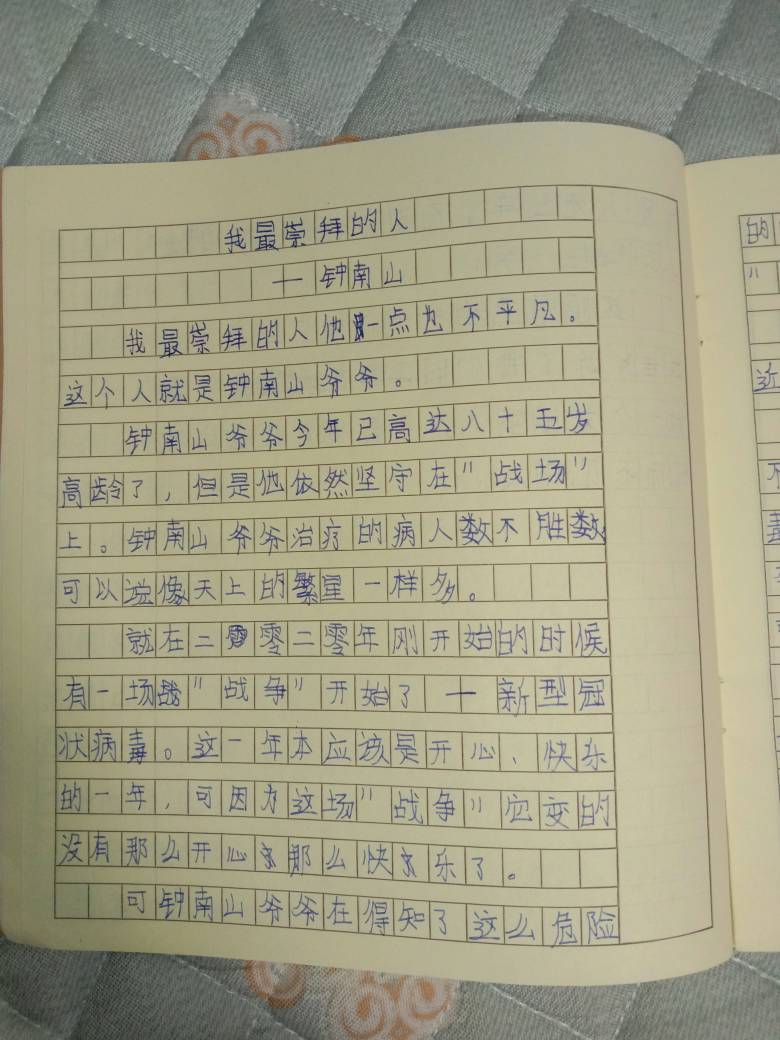 我最崇拜的人
一钟南山
我最崇拜的人他一点也不平凡。
这个人就是钟南山爷爷。
钟南山爷爷今年已高达八十五岁
高龄了，但是他依然坚守在"战场"
上。钟南山爷爷治疗的病人数不胜数
可以说像天上的繁星一样多。
就在二零二零年刚开始的时候
有一场"战争"开始了一新型冠
状病毒。这一年本应该是开心、快乐
的一年，可因为这场"战争"它变的
没有那么开心那么快乐了。
可钟南山爷爷在得知了这么危险
的
"
近